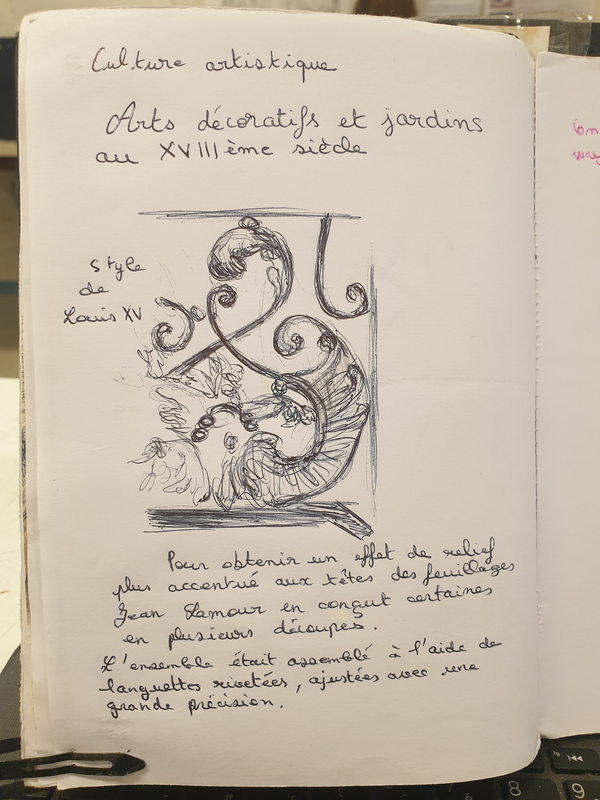 Culture artistique
Arts décoratifs et jardins
au XVIIIème siècle
Style
de
Louis XV
Pour obtenir un effet de relief
plus accentué aux têtes des feuillages
Jean Lamour en conçut certaines
en plusieurs découpes.
L'ensemble était assemblé à l'aide de
languettes rivetées, ajustées avec une
grande précision.
8
9